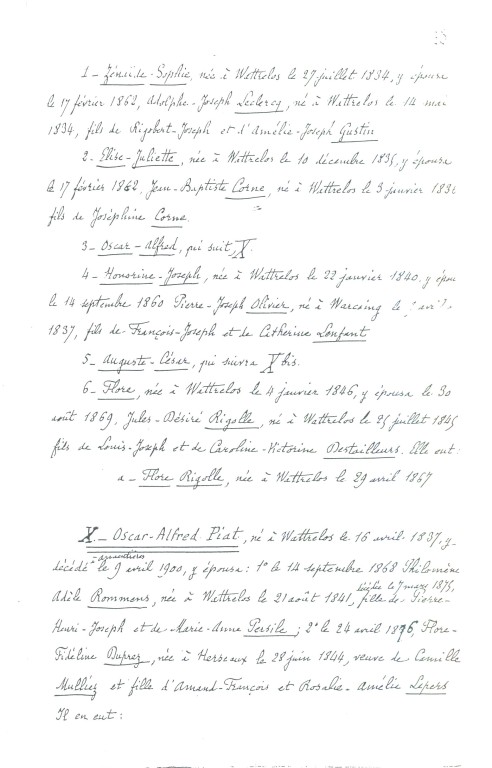 1 - Zénaïde-Sophie, née à Wattrelos le 27 juillet 1834, y épousa
le 17 février 1862, Adolphe-Joseph Leclercq, né à Wattrelos le 14 mai
1834, fils de Rigobert-Joseph et d'Amélie-Joseph Gustin
2 - Elise-Juliette, née à Wattrelos le 10 décembre 1835, y épousa
le 17 février 1862, Jean-Baptiste Corne, né à Wattrelos le 3 janvier
fils de Joséphine Corne.
3 - Oscar-Alfred, qui suit, X.
4 - Honorine-Joseph, née à Wattrelos le 22 janvier 1840. y épou
le 14 septembre 1860 Pierre-Joseph Olivier, né à Warcoing le avril
1837, fils de François-Joseph et de Catherine Lonfant
5 - Auguste-César, qui suivra X bis.
6 - Flore, née à Wattrelos le 4 janvier 1846, y épousa le 30
août 1869, Jules-Désiré Rigolle, né à Wattrelos le 25 juillet 1845
fils de Louis-Joseph et de Caroline-Victorine Destailleurs. Elle eut:
a - Flore Rigolle, née à Wattrelos le 29 avril 1867
X. - Oscar-Alfred Piat, né à Wattrelos le 16 avril 1837, y
décédé le 9 avril 1900, y épousa: 1° le 14 septembre 1868 Philomène
décédée le 7 mars 1875,
Adèle Rommens, née à Wattrelos le 21 août 1841, fille de Pierre-
Henri-Joseph et de Marie-Anne Persile; 2° le 24 avril 1876, Flore-
Fidéline Duprez, née à Herseaux le 28 juin 1844, veuve de Camille
Mulliez et fille d'Amand-François et Rosalie-Amélie Lepers
Il en eut: